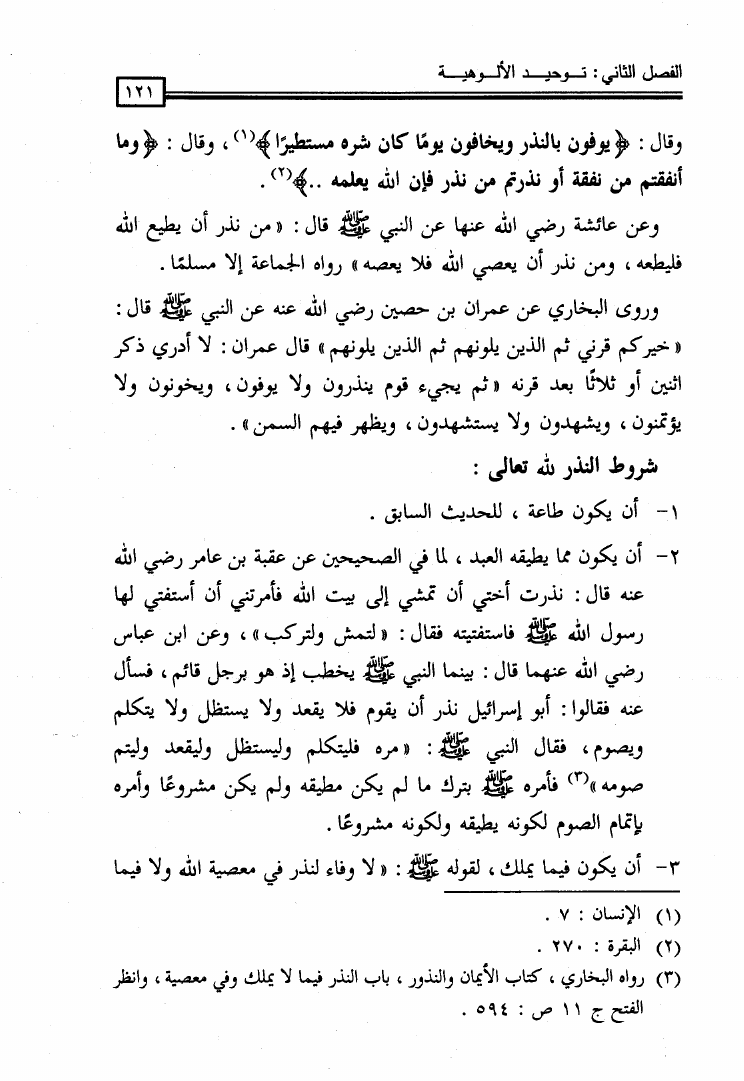 الفصل الثاني : تـوحيـد الألـوهيـة
١٢١
وقال : ﴿ يوفون بالنذر ويخافون يومًا كان شره مستطيرًا ﴾(١) ، وقال : ﴿ وما
أنفقتم من نفقة أو نذرتم من نذر فإن الله يعلمه ..﴾(٢) .
وعن عائشة رضي الله عنها عن النبي ﷺ قال : « من نذر أن يطيع الله
فليطعه ، ومن نذر أن يعصي الله فلا يعصه » رواه الجماعة إلا مسلمًا .
وروى البخاري عن عمران بن حصين رضي الله عنه عن النبي ﷺ قال :
« خيركم قرني ثم الذين يلونهم ثم الذين يلونهم » قال عمران : لا أدري ذكر
اثنين أو ثلاثًا بعد قرنه « ثم يجيء قوم ينذرون ولا يوفون ، ويخونون ولا
يؤتمنون ، ويشهدون ولا يستشهدون ، ويظهر فيهم السمن » .
شروط النذر لله تعالى :
١- أن يكون طاعة ، للحديث السابق .
٢- أن يكون مما يطيقه العبد ، لما في الصحيحين عن عقبة بن عامر رضي الله
عنه قال : نذرت أختي أن تمشي إلى بيت الله فأمرتني أن أستفتي لها
رسول الله ﷺ فاستفتيته فقال : « لتمش ولتركب » ، وعن ابن عباس
رضي الله عنهما قال : بينما النبي ﷺ يخطب إذ هو برجل قائم ، فسأل
عنه فقالوا : أبو إسرائيل نذر أن يقوم فلا يقعد ولا يستظل ولا يتكلم
ويصوم ، فقال النبي ﷺ : « مره فليتكلم وليستظل وليقعد وليتم
صومه »(٣) فأمره ﷺ بترك ما لم يكن مطيقه ولم يكن مشروعًا وأمره
بإتمام الصوم لكونه يطيقه ولكونه مشروعًا .
٣- أن يكون فيما يملك ، لقوله ﷺ : « لا وفاء لنذر في معصية الله ولا فيما
(١) الإنسان : ٧ .
(٢) البقرة : ٢٧٠ .
(٣) رواه البخاري ، كتاب الأيمان والنذور ، باب النذر فيما لا يملك وفي معصية ، وانظر
الفتح ج ١١ ص : ٥٩٤ .